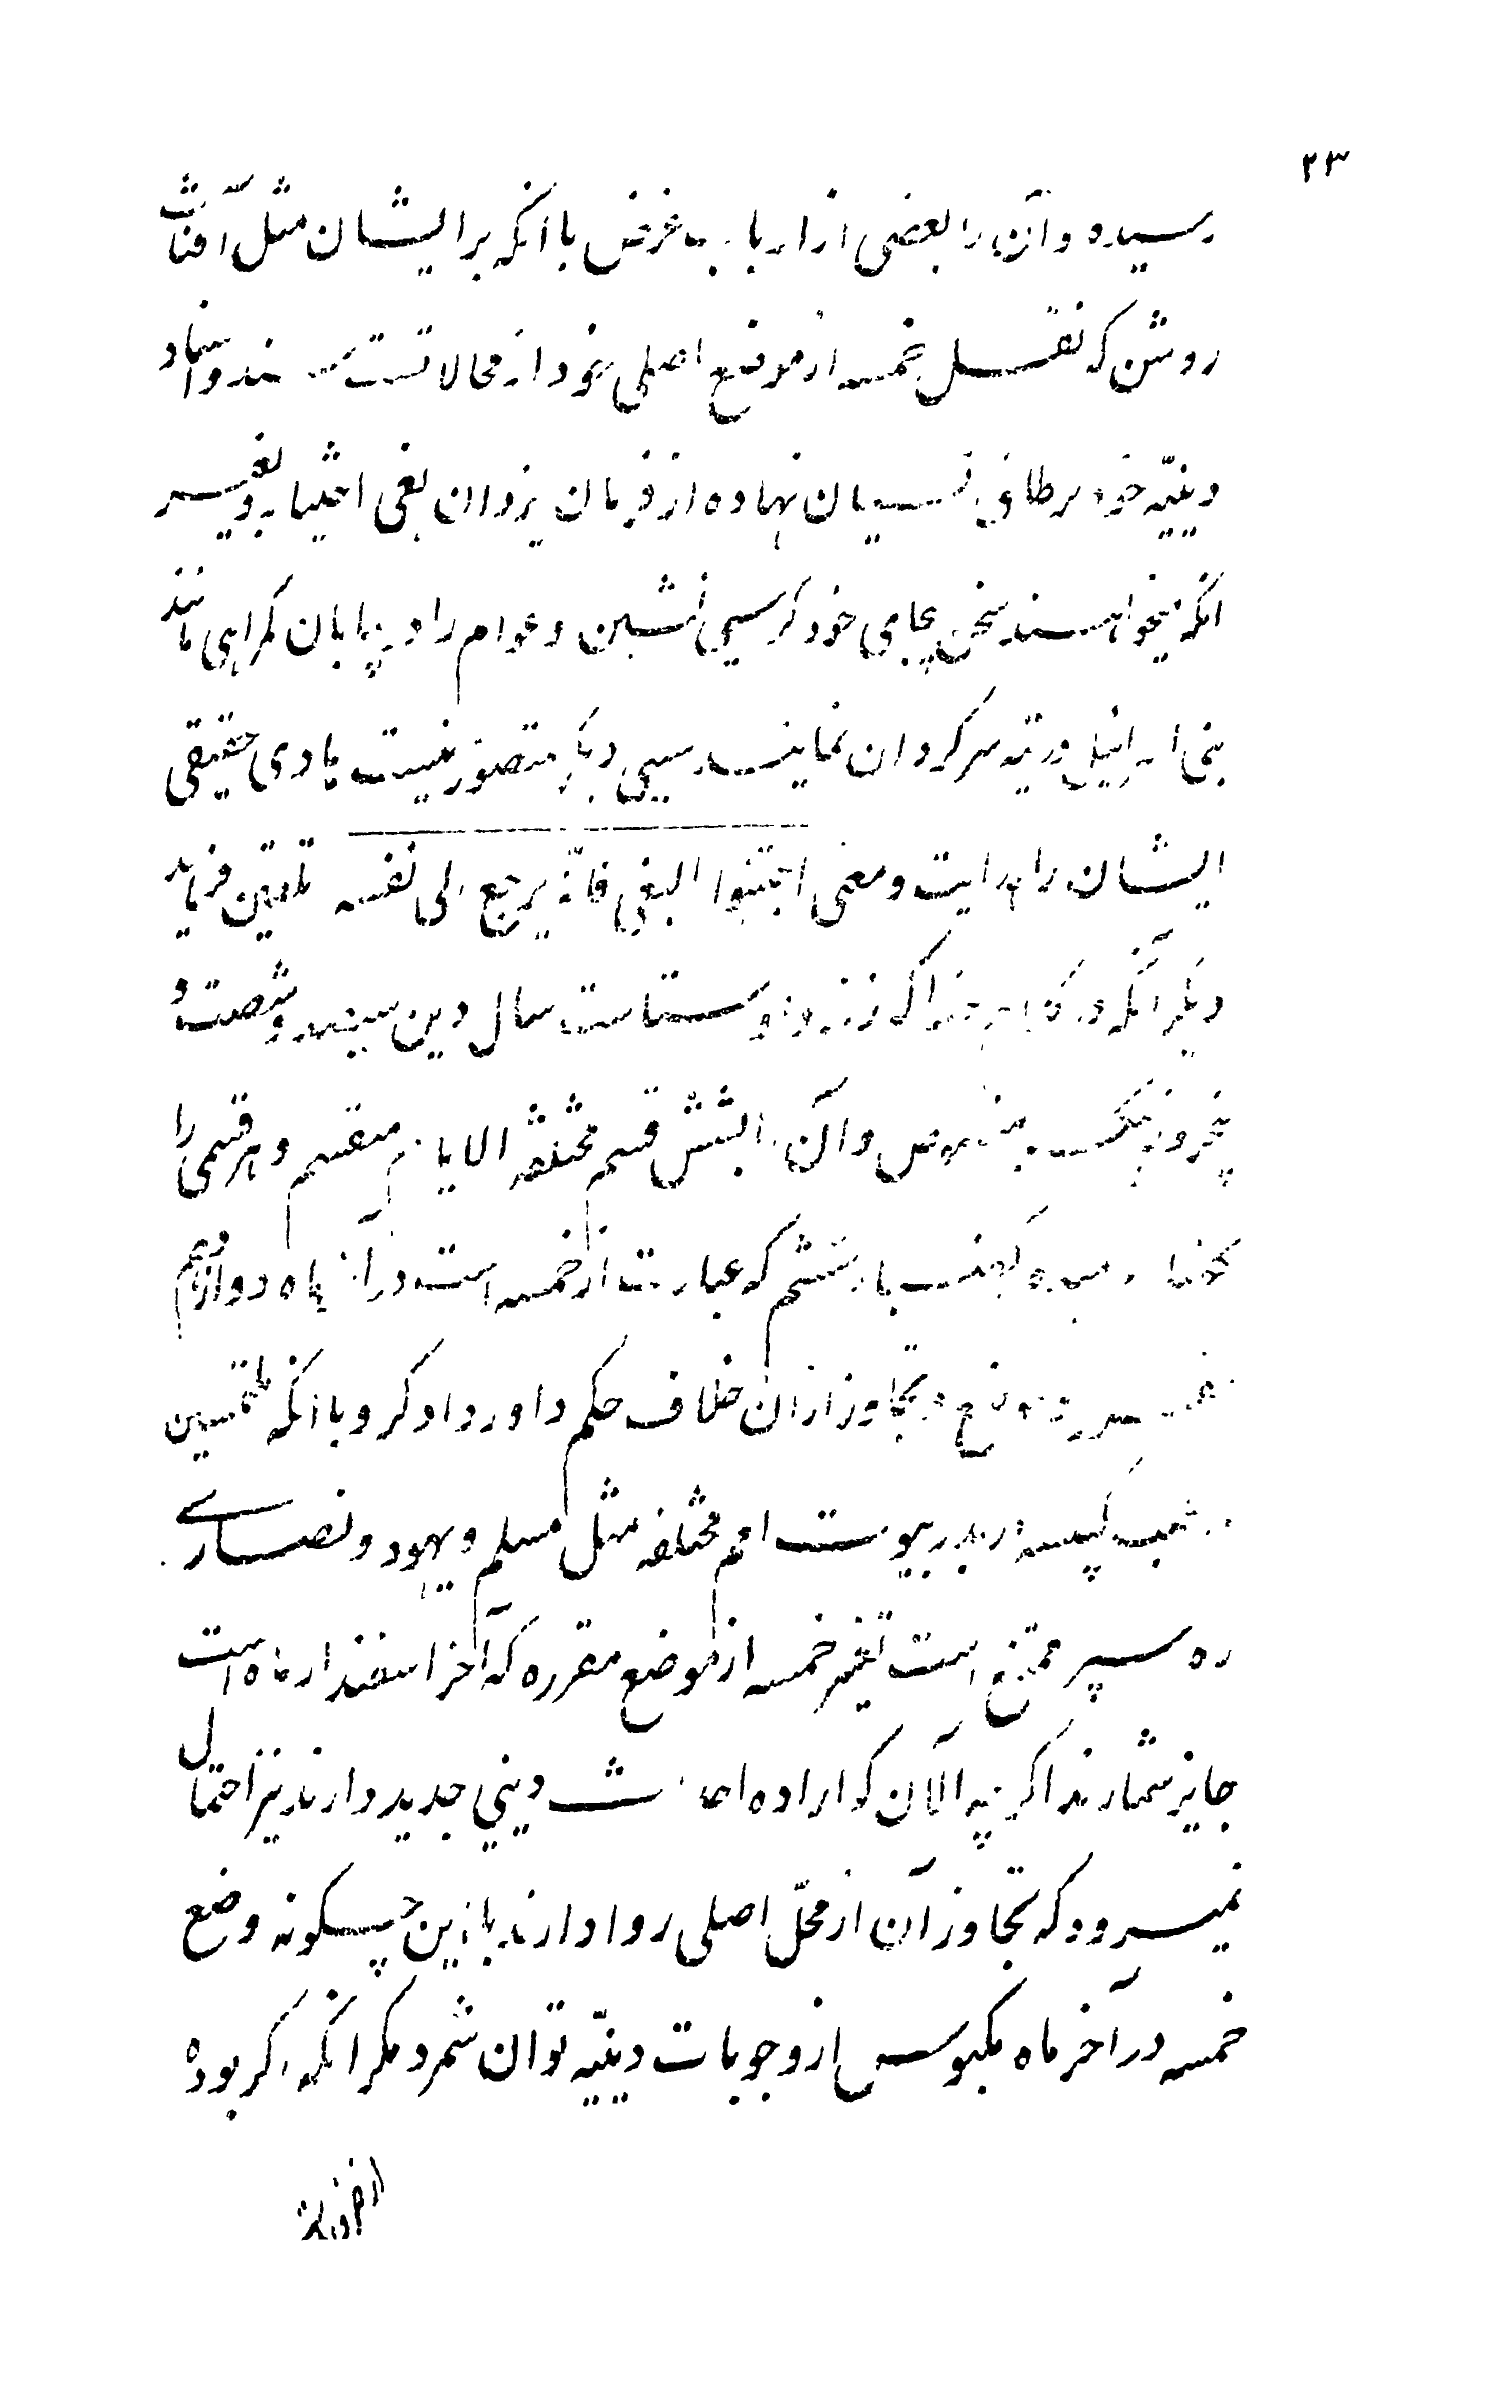 ٢٣
رسیده و آن را بعضی از ارباب غرض با انکه بر ایشان مثل آفتاب
روشن که نقل خمسه از موضع اصلی خود از محالاتست سند و اسناد
دینیّه خود بر طاق نسیان نهاده از فرمان یزدان بغی اختیار و بغیر
انکه میخواهند سخن بجای خود کرسی نشین و عوام را در بیابان کمراهی مانند
بنی اسرائیل در تیه سرکردان نمایند سببی دیکر متصوّر نیست هادی حقیقی
ایشان را هدایت و معنی اجتنبوا البغی فانّه یرجع الی نفسه تلقین فرماید
دیکر آنکه در کلام خدا که زند و اوستاست سال دین سیصد و شصت و
پنجروز و آن را بشش قسم مختلفة الایام منقسم و هر قسمی را
کهنبار که عبارت از خمسه است در آخر ماه دوازدهم
تجاوز از ان خلاف حکم داور دادکر و با انکه
کبیسه در بیوت امم مختلفه مثل مسلم و یهود و نصاری
ره سپر ممتنع است تغیر خمسه از موضع مقرره که آخر اسفندارماه است
جایز شمارند اکر نه الآن که اراده احداث دینی جدید دارند نیز احتمال
نمیرود که تجاوز آن از محلّ اصلی روا دارند با این چسکونه وضع
خمسه در آخر ماه مکبوس از وجوبات دینیّه توان شمرد مکر انکه اکر بوده